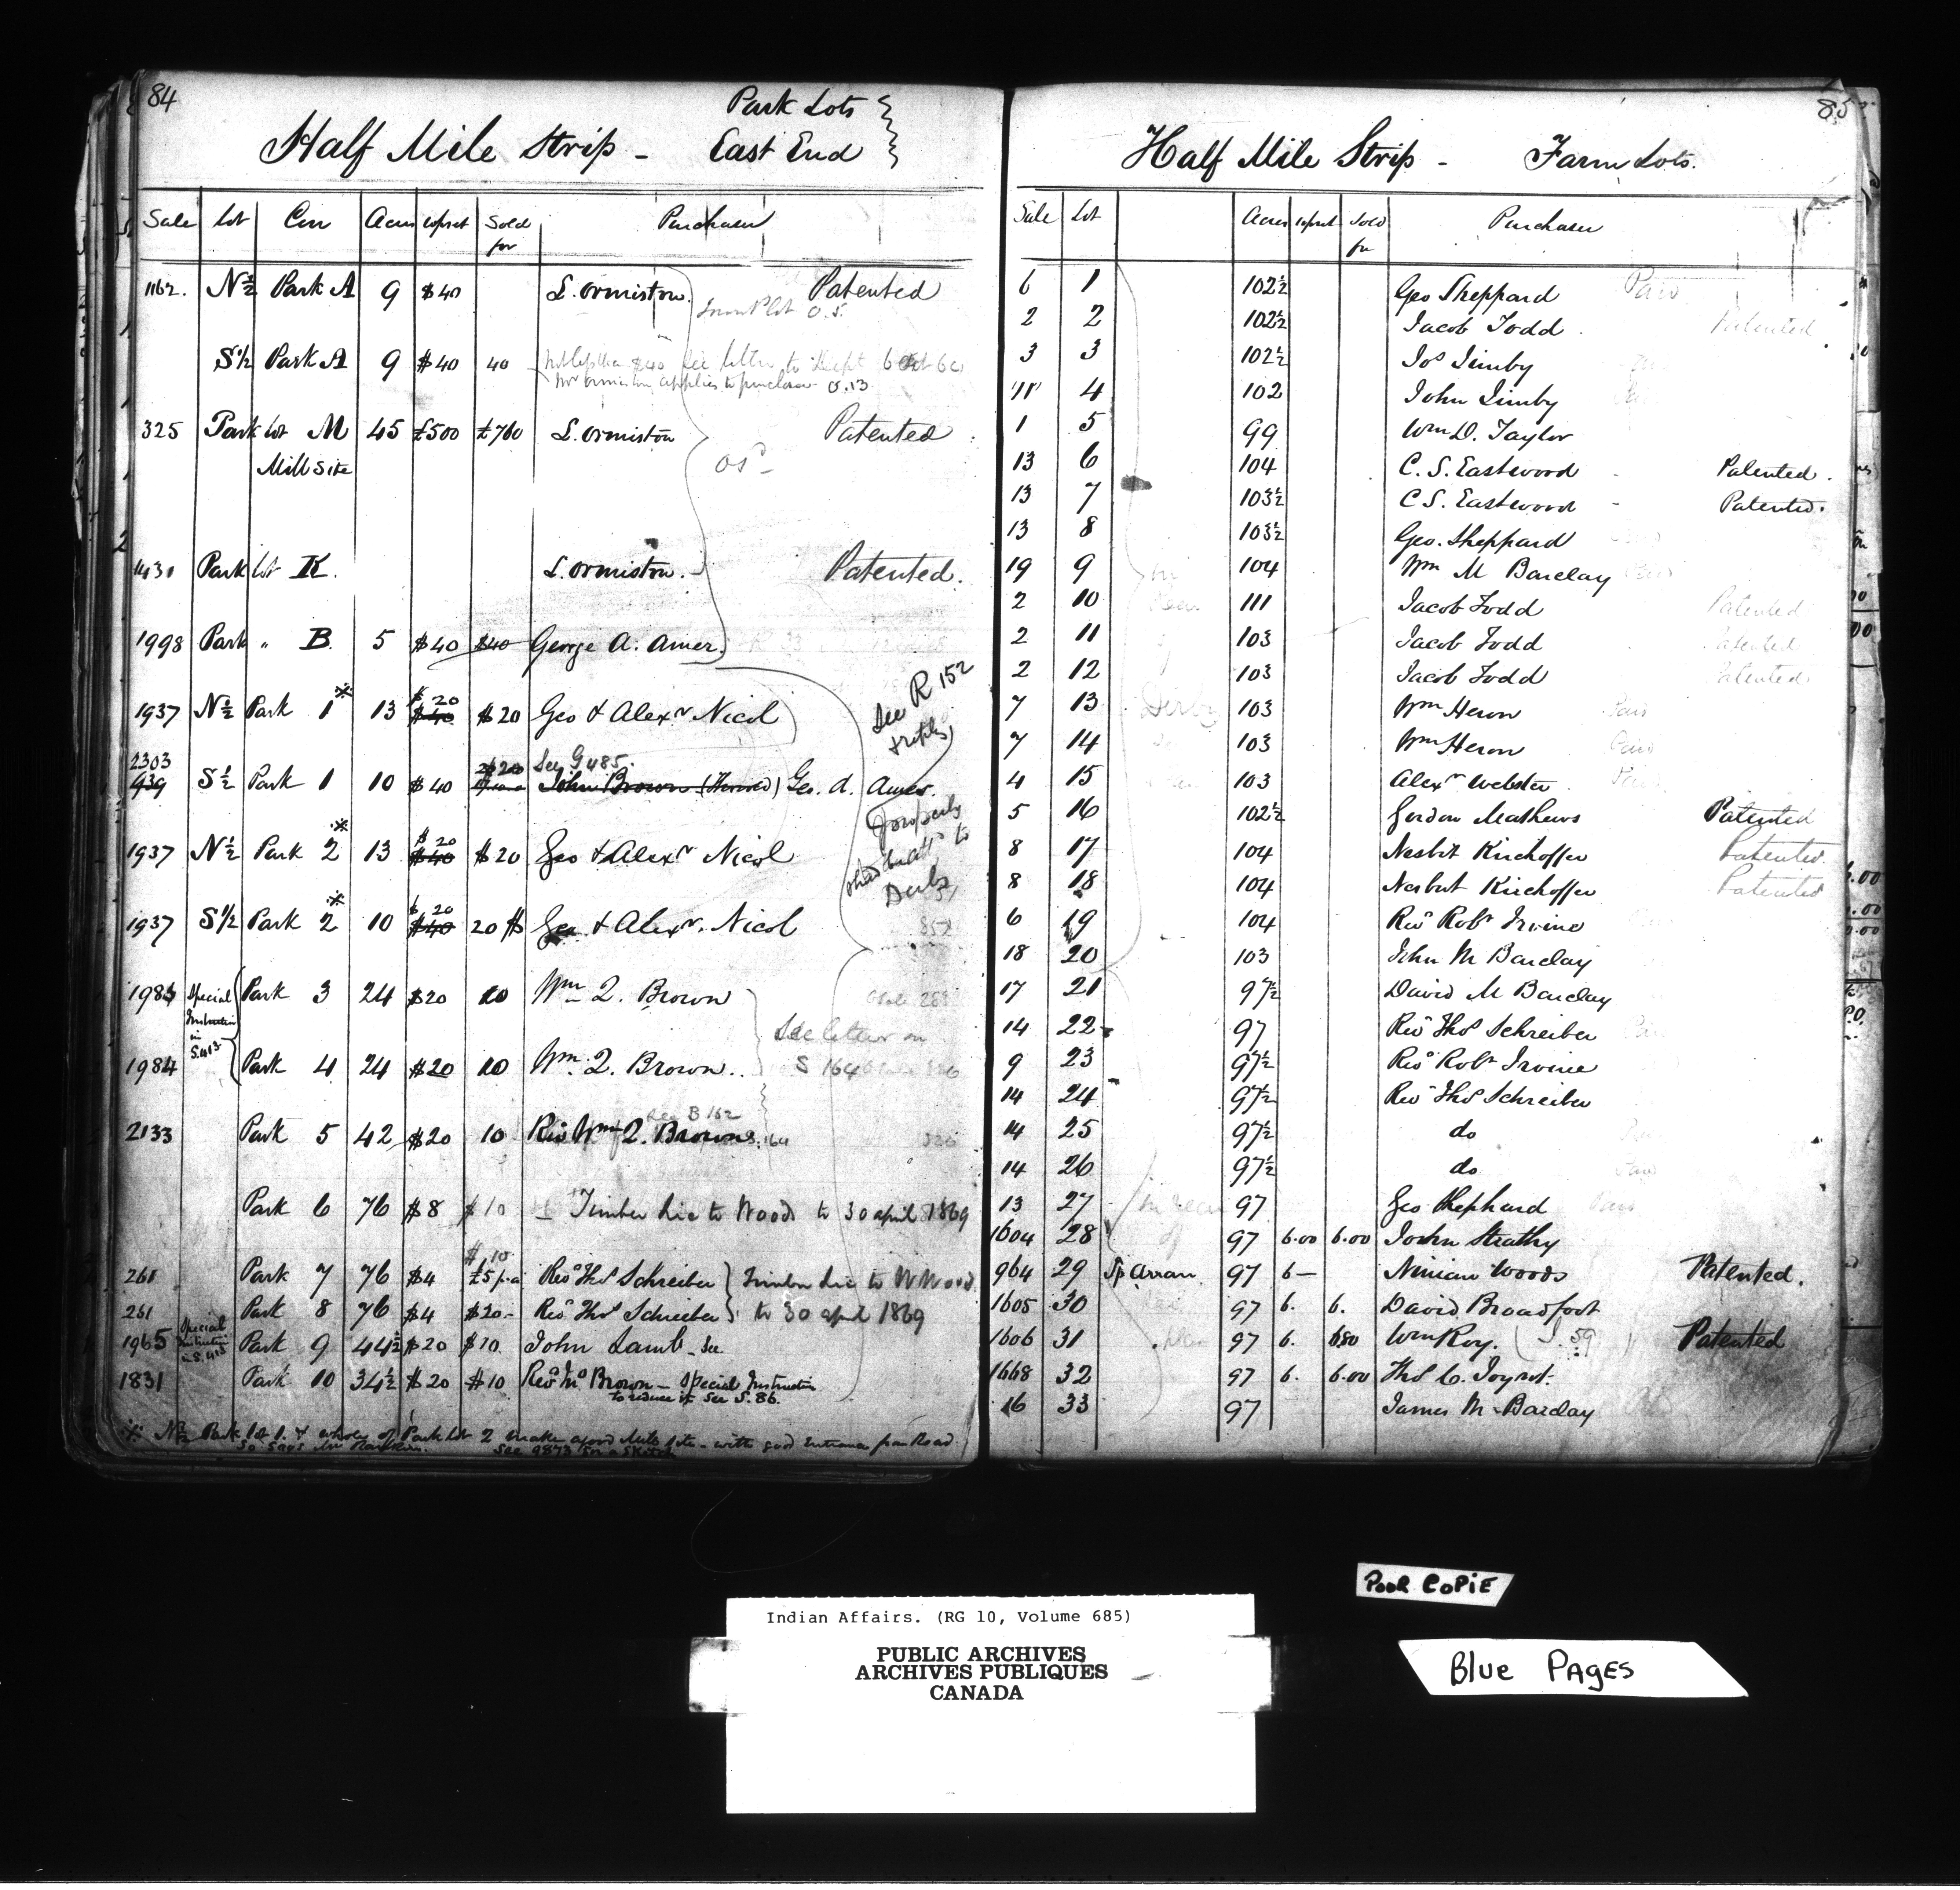 84
Park Lots
Half Mile Strip - East End
Sale Lot Con Acres Upset Sold for Purchaser
1162. N½ Park A 9 $40 L. Ormiston. Patented
S½ Park A 9 $40 40 See letter to
Mr Ormiston applies to purchase O.13
325 Park lot M 45 £500 £760 L. Ormiston Patented
Mill Site
1431 Park lot K. L. Ormiston. Patented.
1998 Park " B. 5 $40 $40 George A. Amer.
See R 152
1937 N½ Park 1 * 13 $20 $40 $20 Geo & Alexr Nicol
2303 See G 485.
939 S½ Park 1 10 $40 $20 John Brown Geo. A. Amer.
Property
to
Derby
1937 N½ Park 2 * 13 $20 $40 $20 Geo & Alexr Nicol
1937 S½ Park 2 * 10 $20 $40 20 $ Geo & Alexr. Nicol
1983 Special Instruction in S.413 Park 3 24 $20 10 Wm Q. Brown
See letter on
1984 Park 4 24 $20 10 Wm. Q. Brown. S 164
See B 162
2133 Park 5 42 $20 10 Revd Wm Q. Brown S.164
Park 6 76 $8 $10 Timber Lic to Woods to 30 april 1869
$10
261 Park 7 76 $4 £5 p.a Revd Thos Schreiber } Timber Lic to W Woods
261 Park 8 76 $4 $20- Revd Thos Schreiber } to 30 april 1869
1965 Special Instruction in S.413 Park 9 44½ $20 $10 John Lamb - See
1831 Park 10 34½ $20 $10 Revd Mr Brown - Special Instruction
to reduce it See S.86.
* N½ Park lot 1. & whole of Park Lot 2 make a good Mill Site - with good Entrance from Road.
So Says Mr Rankin. See 9873 for a Sketch
85
Half Mile Strip - Farm Lots.
Sale Lot Acres Upset Sold for Purchaser
6 1 102½ Geo Sheppard Paid
2 2 102½ Jacob Todd Patented
3 3 102½ Jos Limby
"11" 4 102 John Limby
1 5 99 Wm D. Taylor
13 6 104 C. S. Eastwood Patented.
13 7 103½ C S. Eastwood Patented.
13 8 103½ Geo. Sheppard
19 9 104 Wm M Barclay Paid
2 10 111 Jacob Todd Patented
2 11 103 Jacob Todd Patented
2 12 103 Jacob Todd Patented
7 13 Derby 103 Wm Heron Paid
7 14 103 Wm Heron Paid
4 15 103 Alexr Webster Paid
5 16 102½ Gordon Mathews Patented
8 17 104 Nesbit Kirchoffer Patented.
8 18 104 Nesbit Kirchoffer Patented
6 19 104 Revd Robt Irvine
18 20 103 John M Barclay
17 21 97½ David M Barclay
14 22 97 Revd Thos Schreiber
9 23 97½ Revd Robt Irvine
14 24 97½ Revd Thos Schreiber
14 25 97½ do
14 26 97½ do Paid
13 27 97 Geo Shephard Paid
1604 28 97 6.00 6.00 John Strathy
964 29 Sp Arran. 97 6— Ninian Woods Patented.
1605 30 97 6. 6. David Broadfoot
1606 31 97 6. Wm Roy. S. 59 Patented
1668 32 97 6. 6.00
16 33 97 James M Barclay
POOR COPIE
Indian Affairs. (RG 10, Volume 685)
PUBLIC ARCHIVES
ARCHIVES PUBLIQUES
CANADA
Blue PAGES